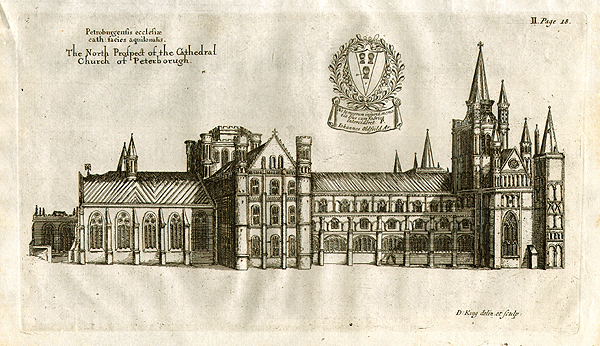 Petroburgensis ecclesiæ
cath facies aquilonalis.
The North Prospect of the Cathedral
Church of Peterborugh.
II. Page 28.
Iohannes Oldfield Ar
D. King delin et sculp